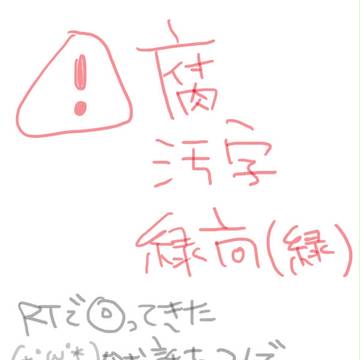 腐
汚字
緑向(緑)
RTで回ってきた